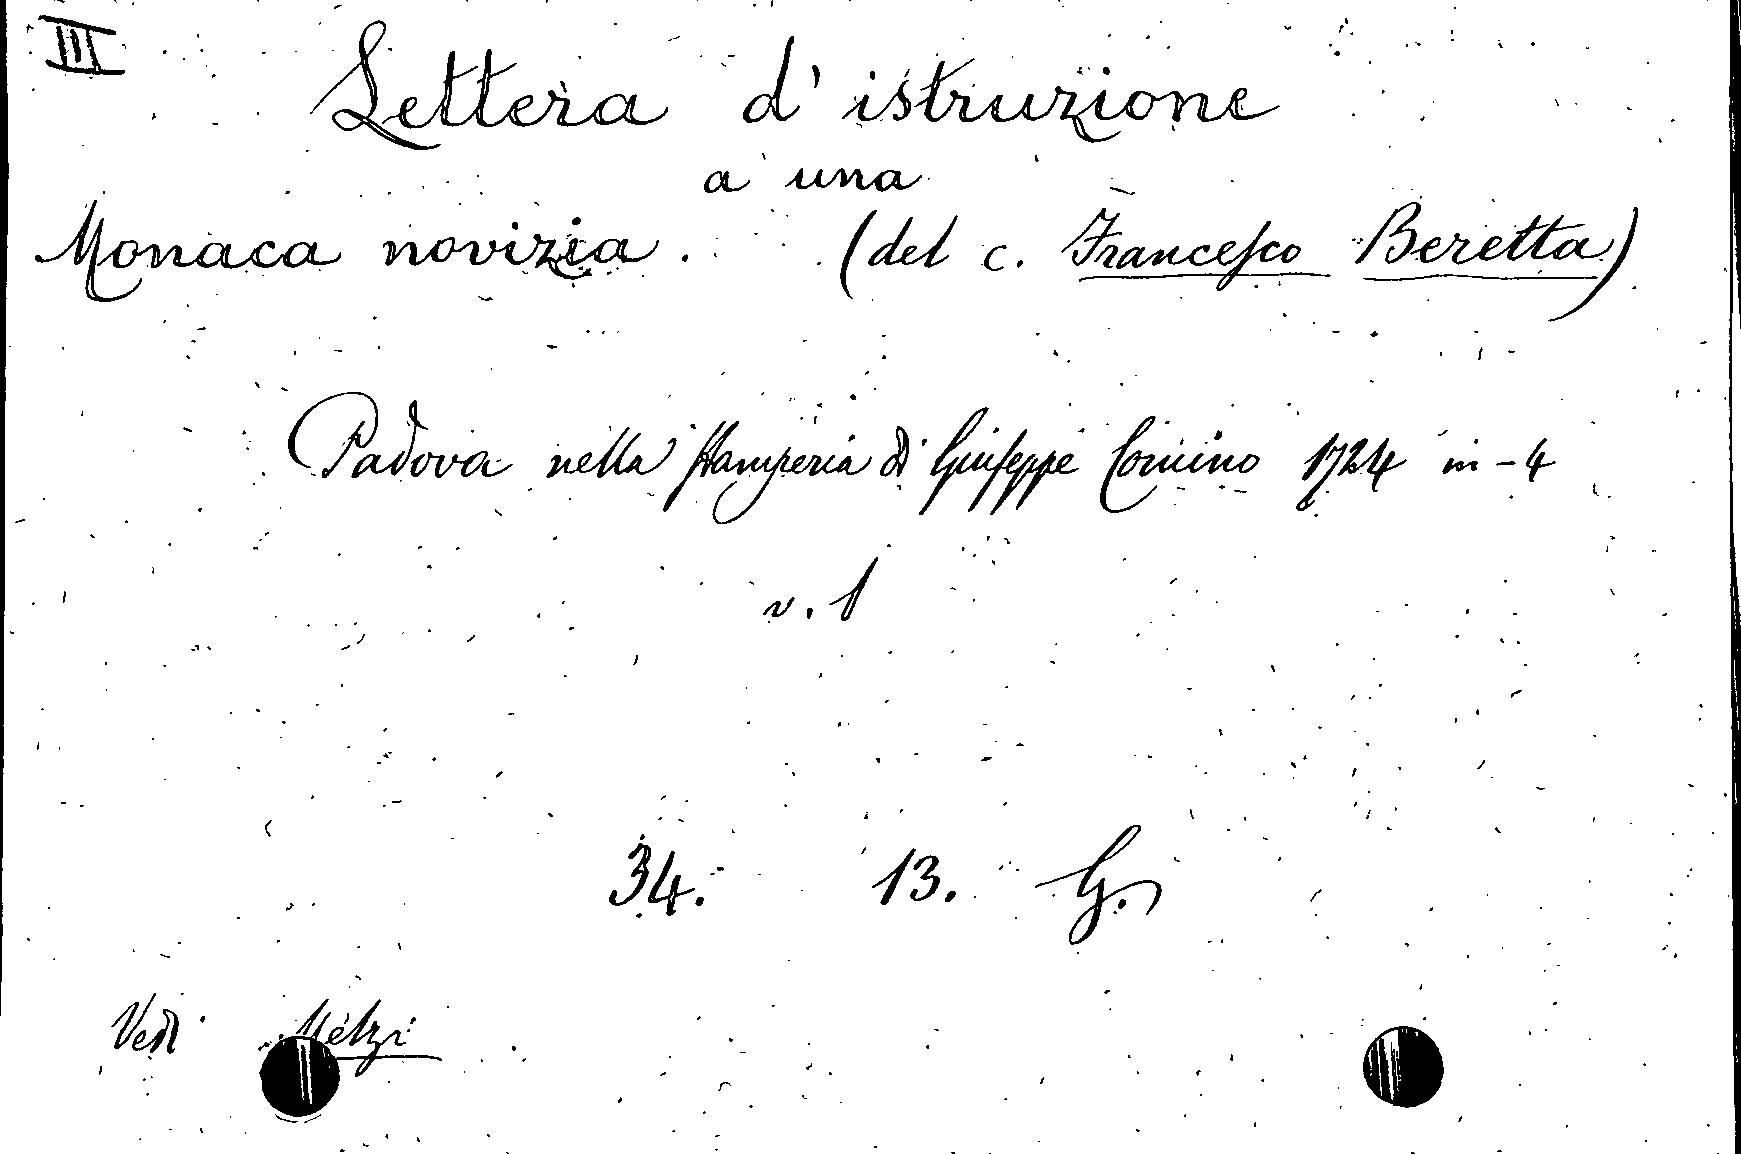 III
Lettera d'istruzione
a una
Monaca novizia. (del c. Francesco Beretta)
Padova nella stamperia di Giuseppe Comino 1724 in-4
v. 1
34. 13. G.
Vedi Melzi